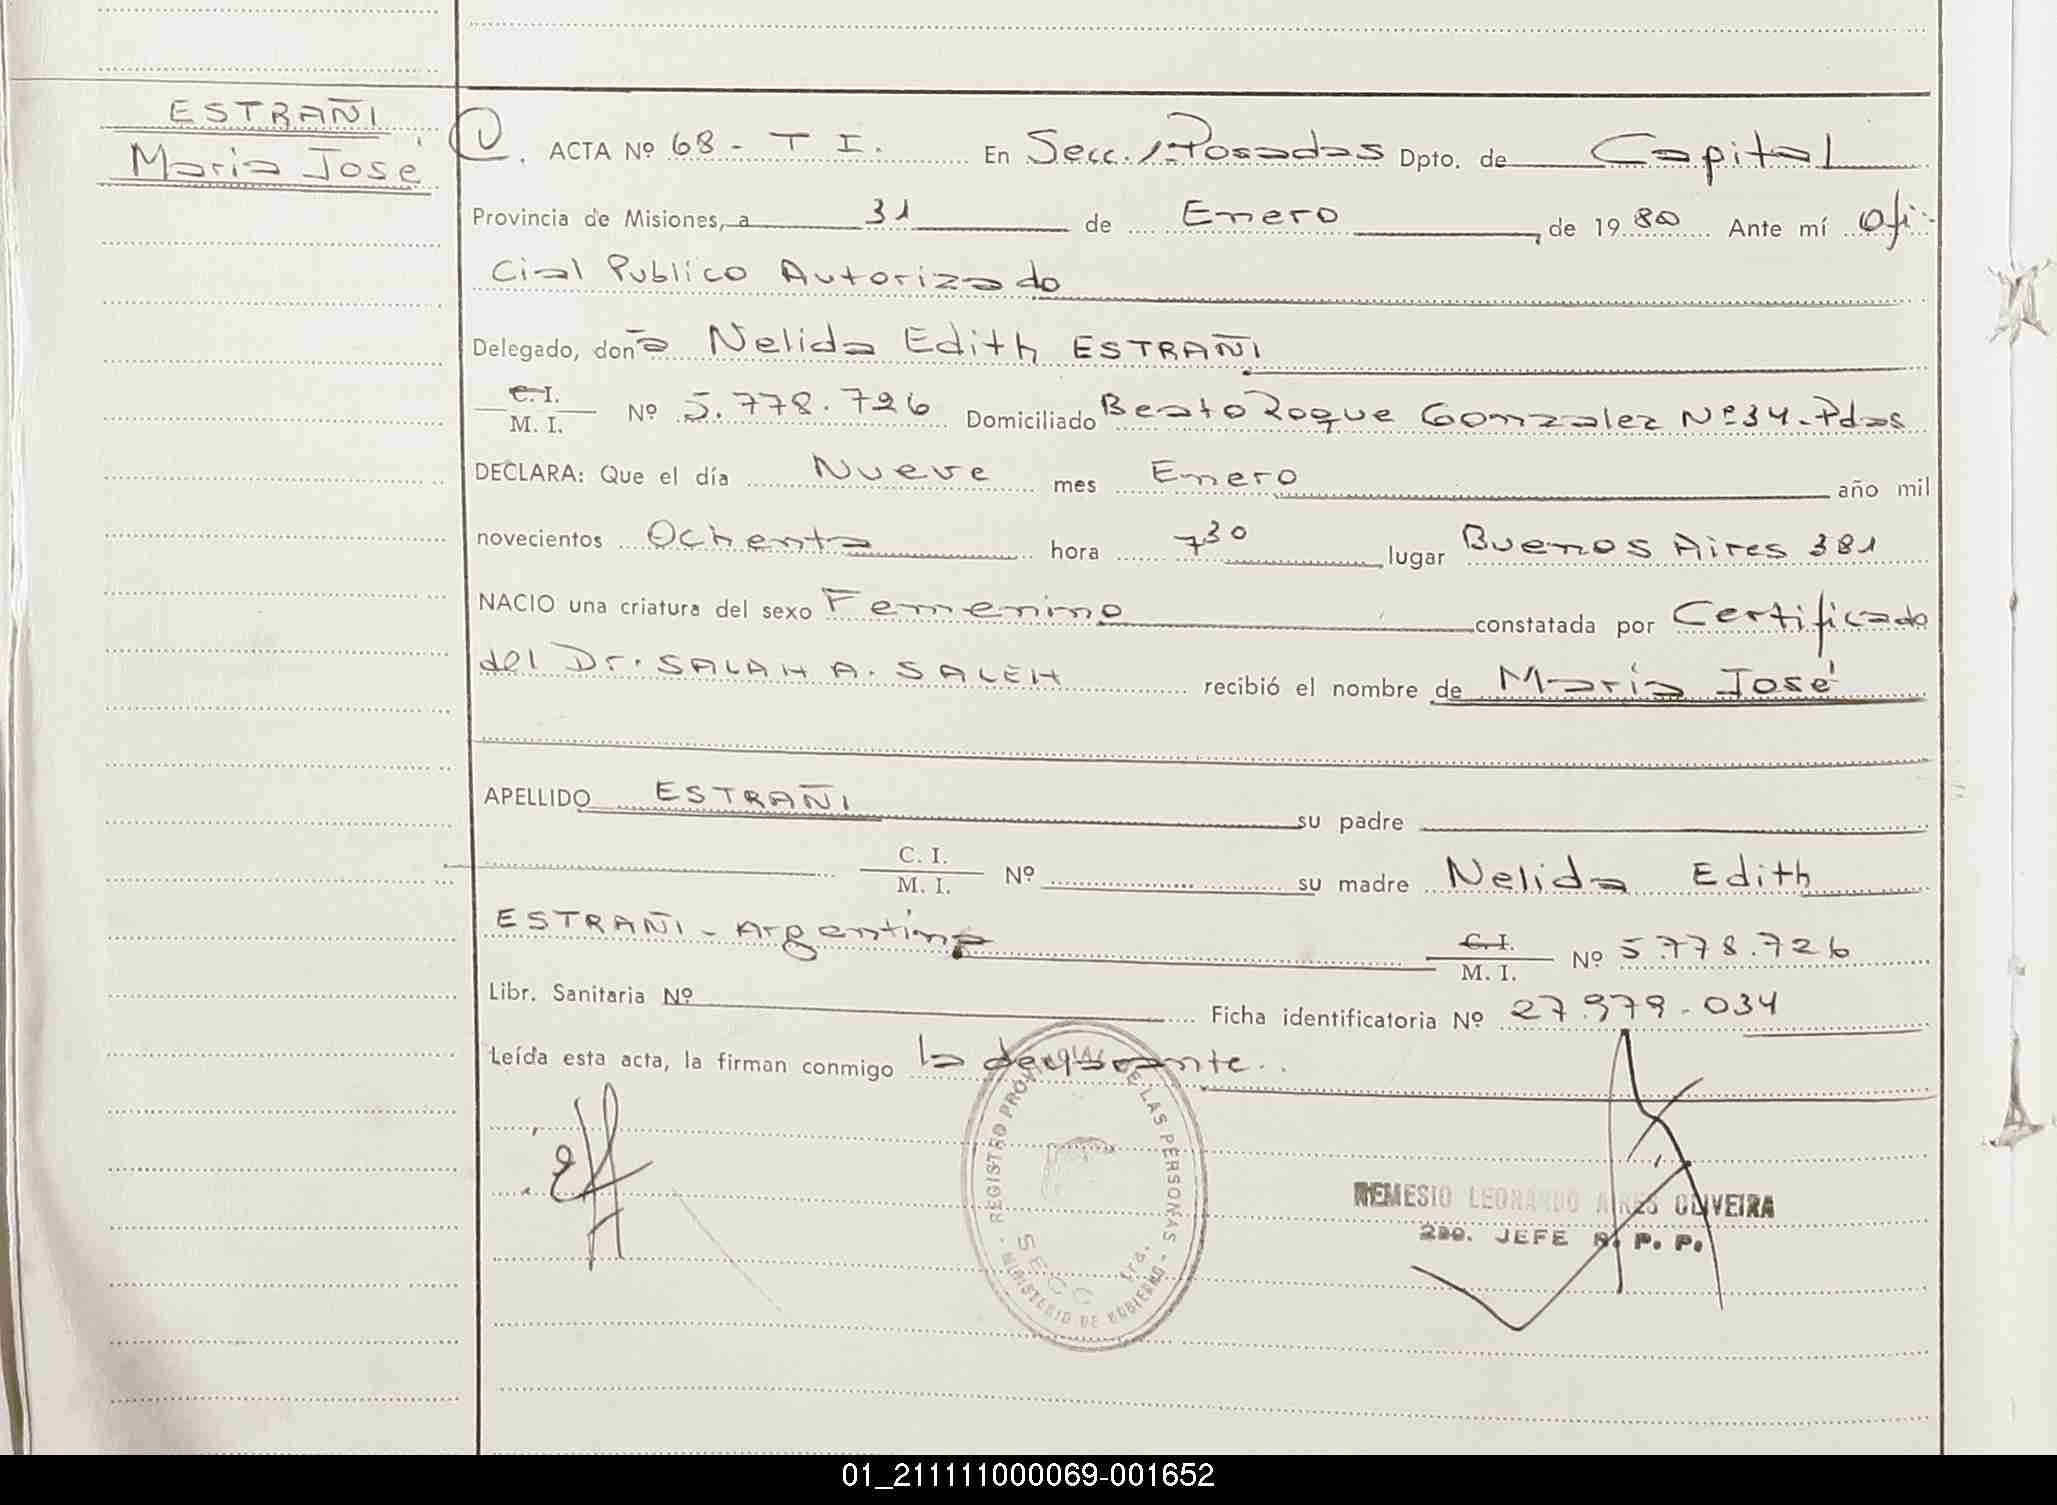 ESTRAÑI
María José
ACTA Nº 68 - T I. En Secc. 1ª Posadas Dpto. de Capital
Provincia de Misiones, a 31 de Enero, de 1980 Ante mí Ofi-
cial Publico Autorizado
Delegado, doña Nelida Edith ESTRAÑI
C. I.
M. I. Nº 5.778.726 Domiciliado Beato Roque Gonzalez Nº 34-Pdas
DECLARA: Que el día Nueve mes Enero año mil
novecientos Ochenta hora 7 30 lugar Buenos Aires 381
NACIO una criatura del sexo Femenino constatada por Certificado
del Dr. SALAH A. SALEH recibió el nombre de María José
APELLIDO ESTRAÑI su padre
C. I.
M. I. Nº su madre Nelida Edith
ESTRAÑI - Argentina C. I.
M. I. Nº 5.778.726
Libr. Sanitaria Nº Ficha identificatoria Nº 27.979.034
Leída esta acta, la firman conmigo la declarante.
REGISTRO PROVINCIAL DE LAS PERSONAS
SECC 1ra.
MINISTERIO DE GOBIERNO
REMESIO LEONARDO AIRES OLIVEIRA
2do. JEFE R. P. P.
01_211111000069-001652